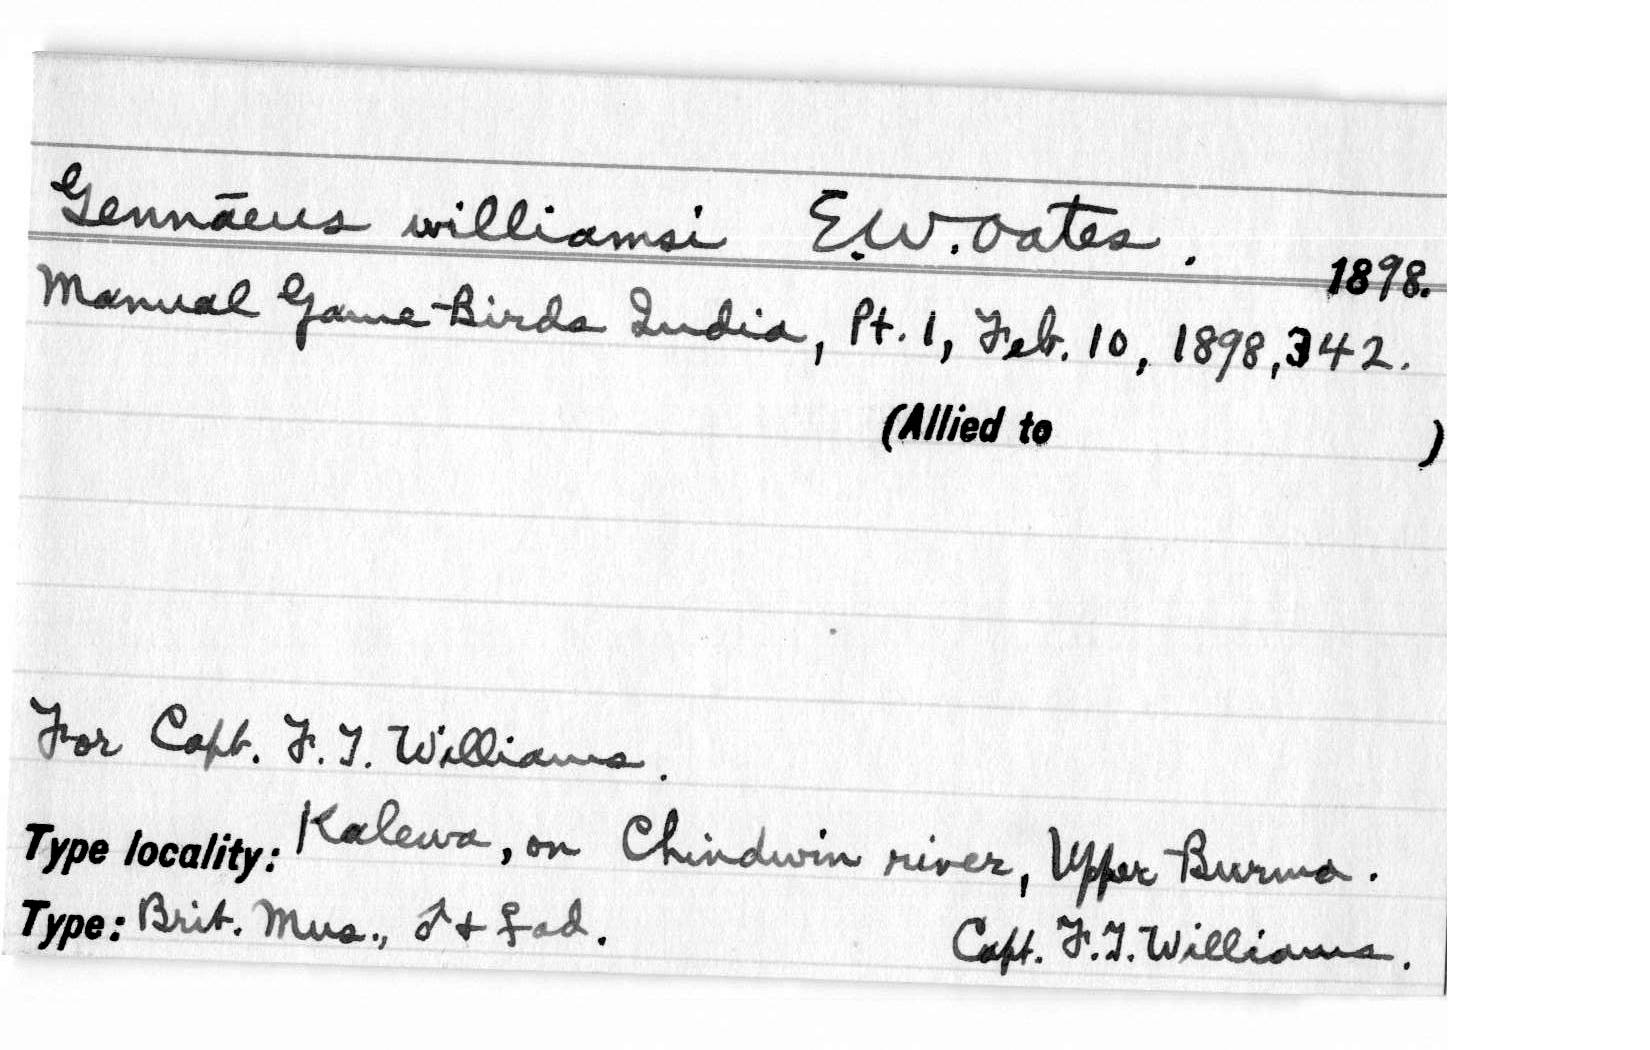 Gennāeus williamsi E.W. Oates.
1898.
Manual Game-Birds India, Pt. 1, Feb. 10, 1898, 342.
(Allied to )
For Capt. F. T. Williams.
Type locality: Kalewa, on Chindwin river, Upper Burma.
Type: Brit. Mus., ♂ + ♀ ad. Capt. F. T. Williams.